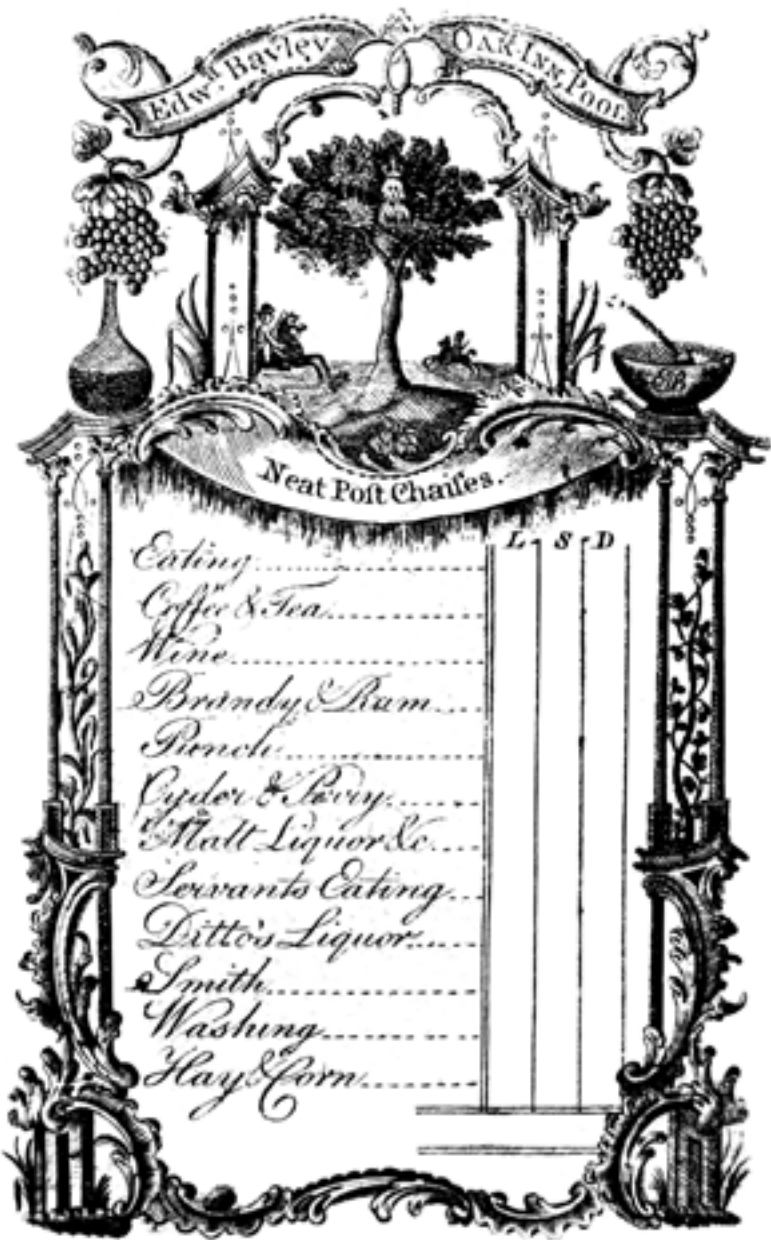 Edwd. Bayley
OAK INN, Pool.
EB
Neat Poſt Chaiſes.
L S D
Eating
Coffee & Tea
Wine
Brandy & Rum
Punch
Cyder & Perry
Malt Liquor &c.
Servants Eating
Ditto's Liquor
Smith
Washing
Hay & Corn